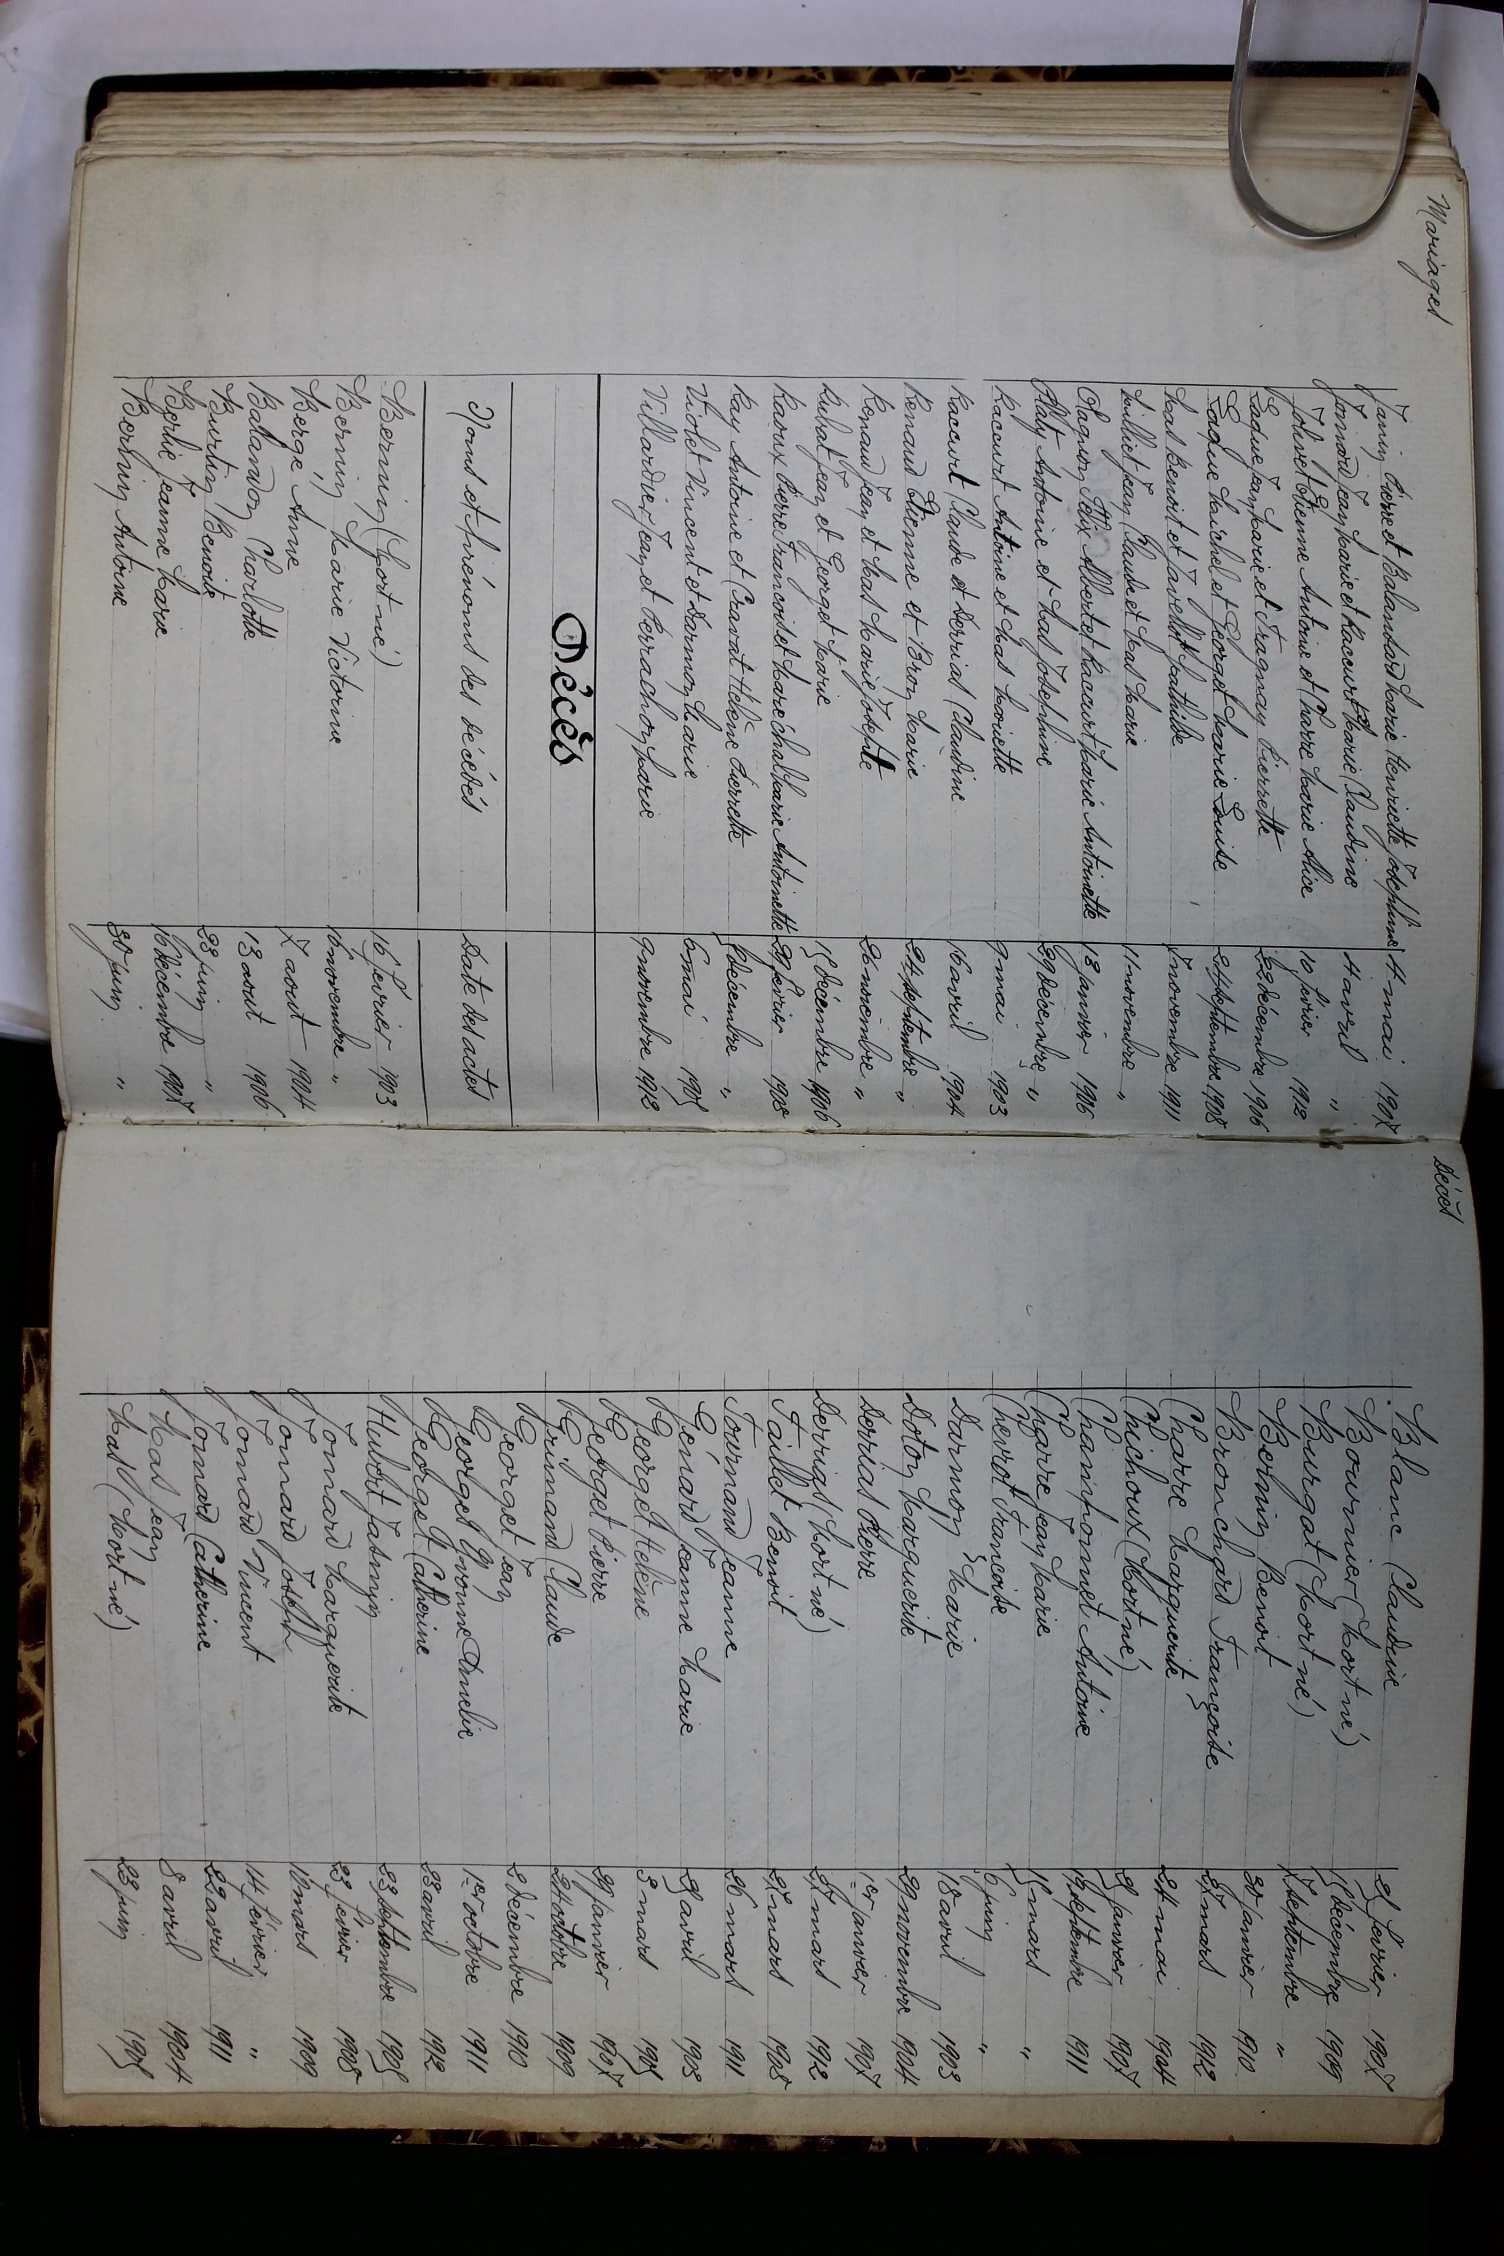 Mariages
Jamin Pierre et Balandard Marie Henriette Joséphine 4 mai 1907
Jomard Jean Marie et Raccurt Marie Claudine 4 avril "
Jolivet Etienne Antoine et Charre Marie Alice 10 février 1912
Laque Jean Marie et Fragnay Pierrette 22 décembre 1906
Laque Michel et Georget Marie Louise 24 septembre 1908
Mas Benoit et Favellet Mathilde 7 novembre 1911
Milliet Jean Claude et Mas Marie 11 novembre "
Félix Albert et Raccurt Marie Antoinette 13 janvier 1906
Antoine et Mas Joséphine 29 décembre "
Raccurt Antoine et Mas Mariette 9 mai 1903
Raccurt Claude et Derrias Claudine 16 avril 1904
Renaud Etienne et Bron Marie 24 septembre "
Renaud Jean et Mas Marie Josephte 26 novembre "
Rubat Jean et Georget Marie 15 décembre 1906
Raoux Pierre François et Maréchal Marie Antoinette 29 février 1908
Ray Antoine et Cravat Hélène Pierrette décembre "
Violet Vincent et Darmon Marie 6 mai 1905
Villardier Jean et Perrachon Marie 9 novembre 1912
Décès
Noms et prénoms des décédés Date des actes
Bernin (Mort-né) 16 février 1903
Bernin Marie Victorine 16 novembre "
Bergé Anne 7 aout 1904
Balandon Charlotte 13 aout 1906
Burtin Benoite 23 juin "
Berlié Jeanne Marie 16 décembre 1907
Bernin Antoine 30 juin "
Décès
Blanc Claudine février 1907
Bournier (Mort-né) 15 décembre 1909
Burgat (Mort-né) 7 septembre "
Bernin Benoit 30 janvier 1910
Bronchard Françoise 27 mars 1912
Charre Marguerite 24 mai 1904
Chichoux (Mort né) janvier 1907
Champonnet Antoine septembre 1911
Charre Jean Marie 15 mars "
Chevrot Françoise 6 juin "
Darmon Marie 18 avril 1903
Doton Marguerite 29 novembre 1904
Derrias Pierre 1er janvier 1907
Derrias (Mort né) 27 mars 1912
Faillet Benoit 27 mars 1908
Fournand Jeanne 26 mars 1911
Génard Jeanne Marie avril 1903
Georget Hélène 3 mars 1905
Georget Pierre 29 janvier 1907
Grimand Claude 24 octobre 1909
Georget Jean 2 décembre 1910
Georget Yvonne Amélie 1er octobre 1911
Georget Catherine 23 avril 1912
Hubort Fabrnin 23 septembre 1905
Jomard Marguerite 23 février 1908
Jomard Joseph 10 mars 1909
Jomard Vincent 14 février "
Jomard Catherine 22 avril 1911
Mas Jean 8 avril 1904
Mas (Mort né) 23 juin 1905